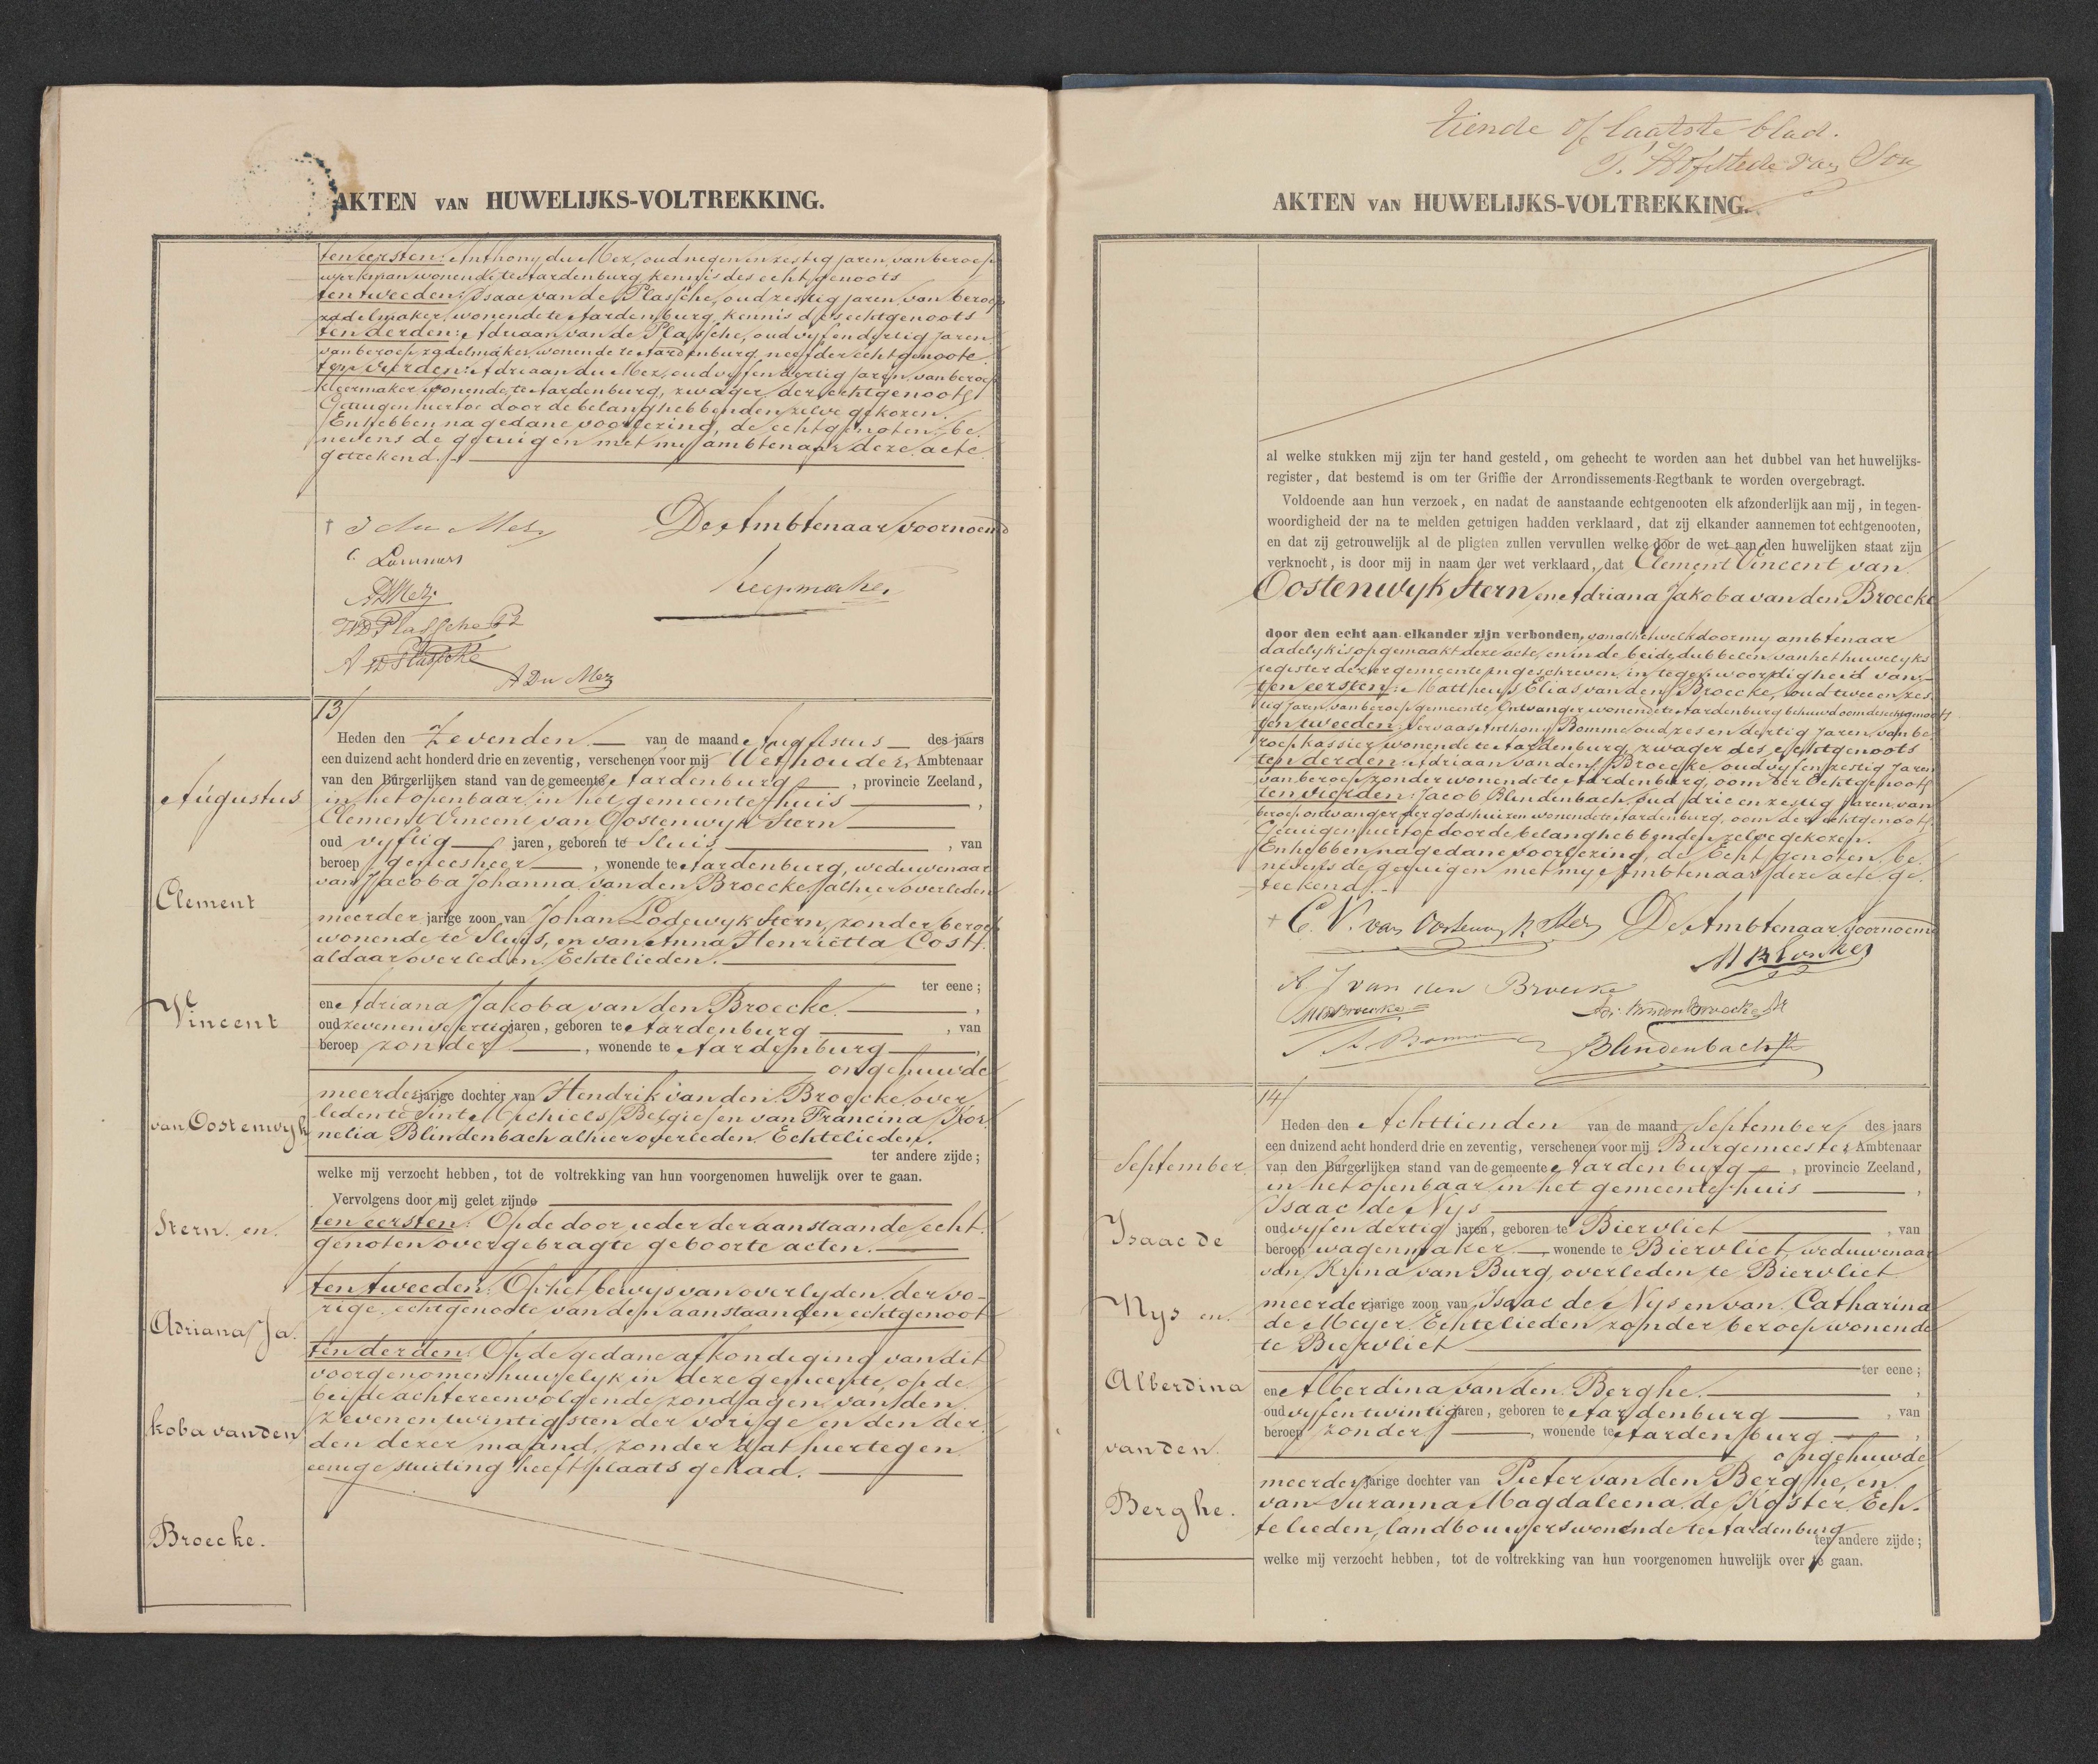 AKTEN VAN HUWELIJKS-VOLTREKKING.
ten eersten: Anthony du Mez, oud negen en zestig jaren, van beroep
werkman wonende te Aardenburg, kennis des echtgenoots
ten tweeden: Isaac van de Plassche, oud zestig jaren, van beroep
zadelmaker, wonende te Aardenburg, kennis des echtgenoots
ten derden: Adriaan van de Plassche, oud vyf en dertig jaren
van beroep zadelmaker, wonende te Aardenburg neef der echtgenoote
ten vierden: Adriaan du Mez, oud vyf en dertig jaren, van beroep
kleermaker wonende te Aardenburg, zwager der echtgenoote
Getuigen hiertoe door de belanghebbenden zelve gekozen.
En hebben na gedane voorlezing, de echtgenoten, be
nevens de getuigen met my ambtenaar deze acte
geteekend.
J du Mez
De Ambtenaar voornoemd
C. Lammers
A D Mez
VD Plassche
A VD Plassche
A Du Mez
13/
Augustus
Clement
Vincent
van Oostenwyk
Stern. en.
Adriana Ja.
koba van den
Broecke.
Heden den Zevenden van de maand Augustus des jaars
een duizend acht honderd drie en zeventig, verschenen voor mij Wethouder, Ambtenaar
van den Burgerlijken stand van de gemeente Aardenburg, provincie Zeeland,
in het openbaar in het gemeentehuis,
Clement Vincent van Oostenwyk Stern
oud vyftig jaren, geboren te Sluis, van
beroep geneesheer, wonende te Aardenburg, weduwenaar
van Jacoba Johanna van den Broecke, alhier overleden
meerder jarige zoon van Johan Lodewyk Stern, zonder beroep
wonende te Sluis, en van Anna Henrietta Costt.
aldaar overleden. Echtelieden.
ter eene;
en Adriana Jakoba van den Broecke.,
oud zeven en veertig jaren, geboren te Aardenburg, van
beroep zonder, wonende te Aardenburg,
ongehuwde
meerderjarige dochter van Hendrik van den Broecke, over
leden te Sint Michiels/Belgie/en van Francina Kor
nelia Blindenbach alhier overleden. Echtelieden.
ter andere zijde;
welke mij verzocht hebben, tot de voltrekking van hun voorgenomen huwelijk over te gaan.
Vervolgens door mij gelet zijnde
ten eersten: Op de door ieder der aanstaande echt.
genoten overgebragte geboorte acten.
ten tweeden: Op het bewys van overlyden der vo-
rige echtgenoote van den aanstaanden echtgenoot
ten derden: Op de gedane afkondiging van dit
voorgenomen huwelyk in deze gemeente, op de
beide achtereenvolgende zondagen, van den
zeven en twintigsten der vorige en den der
den dezer maand, zonder dat hiertegen
eenige stuiting heeft plaats gehad.
tiende of laatste blad.
P. Hofstede van Son
AKTEN VAN HUWELIJKS-VOLTREKKING.
al welke stukken mij zijn ter hand gesteld, om gehecht te worden aan het dubbel van het huwelijks-
register, dat bestemd is om ter Griffie der Arrondissements-Regtbank te worden overgebragt.
Voldoende aan hun verzoek, en nadat de aanstaande echtgenooten elk afzonderlijk aan mij, in tegen-
woordigheid der na te melden getuigen hadden verklaard, dat zij elkander aannemen tot echtgenooten,
en dat zij getrouwelijk al de pligten zullen vervullen welke door de wet aan den huwelijken staat zijn
verknocht, is door mij in naam der wet verklaard, dat Clement Vincent van
Oostenwyk Stern en Adriana Jakoba van den Broecke
door den echt aan elkander zijn verbonden, van al hetwelk door my ambtenaar
dadelyk is opgemaakt deze acte, en in de beide dubbelen van het huwelyks
register dezer gemeente ingeschreven in tegenwoordigheid van
ten eersten: Mattheus Elias van den Broecke, oud twee en zes
tig jaren, van beroep gemeente Ontvanger wonende te Aardenburg behuwdoom des echtgenoots
ten tweeden: Servaas Anthony Bomme oud zes en dertig jaren, van be
roep kassier wonende te Aardenburg, zwager des echtgenoots
ten derden: Adriaan van den Broecke, oud vyf en zestig jaren
van beroep zonder wonende te Aardenburg, oom der echtgenoote
ten vierden: Jacob Blindenbach, oud drie en zestig jaren, van
beroep ontvanger der godshuizen wonende te Aardenburg, oom der echtgenoote
Getuigen hiertoe door de belanghebbenden zelve gekozen.
En hebben na gedane voorlezing, de Echtgenoten, be
nevens de getuigen met my Ambtenaar deze acte ge
teekend.
C. V. van Oostenwyk Stern
De Ambtenaar voornoemd
A J van den Broecke
Blindenbach
14/
September
Isaac de
Nys en.
Alberdina
van den.
Berghe.
Heden den Achttienden van de maand September des jaars
een duizend acht honderd drie en zeventig, verschenen voor mij Burgemeester Ambtenaar
van den Burgerlijken stand van de gemeente Aardenburg, provincie Zeeland,
in het openbaar in het gemeentehuis,
Isaac de Nys
oud vyf en dertig jaren, geboren te Biervliet, van
beroep wagenmaker, wonende te Biervliet, weduwenaar
van Krina van Burg, overleden te Biervliet
meerderjarige zoon van Isaac de Nys en van Catharina
de Meyer. Echtelieden zonder beroep wonende
te Biervliet
ter eene;
en Alberdina van den Berghe.,
oud vyf en twintig jaren, geboren te Aardenburg, van
beroep zonder, wonende te Aardenburg,
ongehuwde
meerderjarige dochter van Pieter van den Berghe, en
van Suzanna Magdaleena de Koster, Ech.
telieden, landbouwers wonende te Aardenburg
ter andere zijde;
welke mij verzocht hebben, tot de voltrekking van hun voorgenomen huwelijk over te gaan.